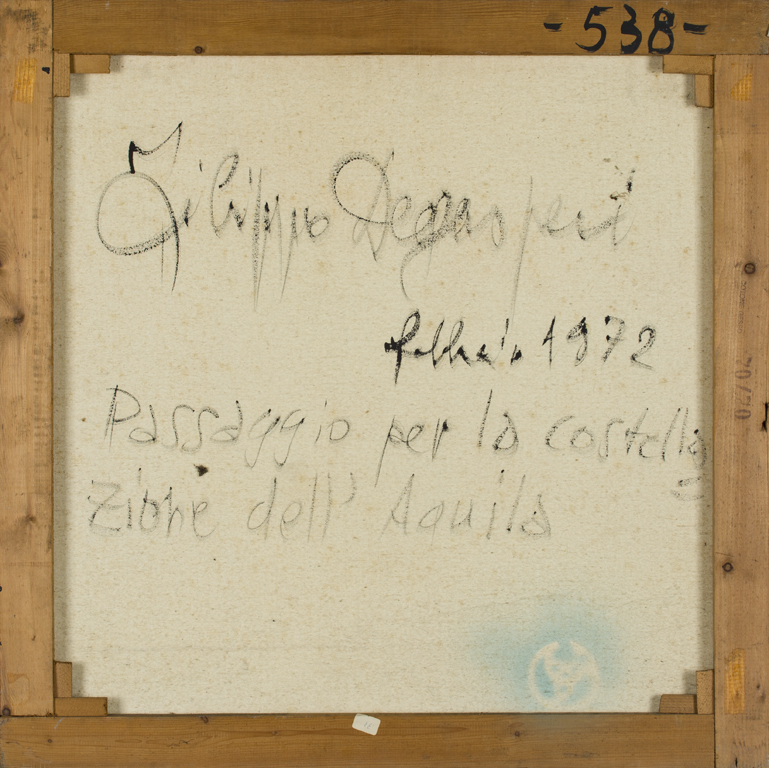 -538-
Filippo Degasperi
febbraio 1972
Passaggio per la costella
=
zione dell'Aquila
70/70